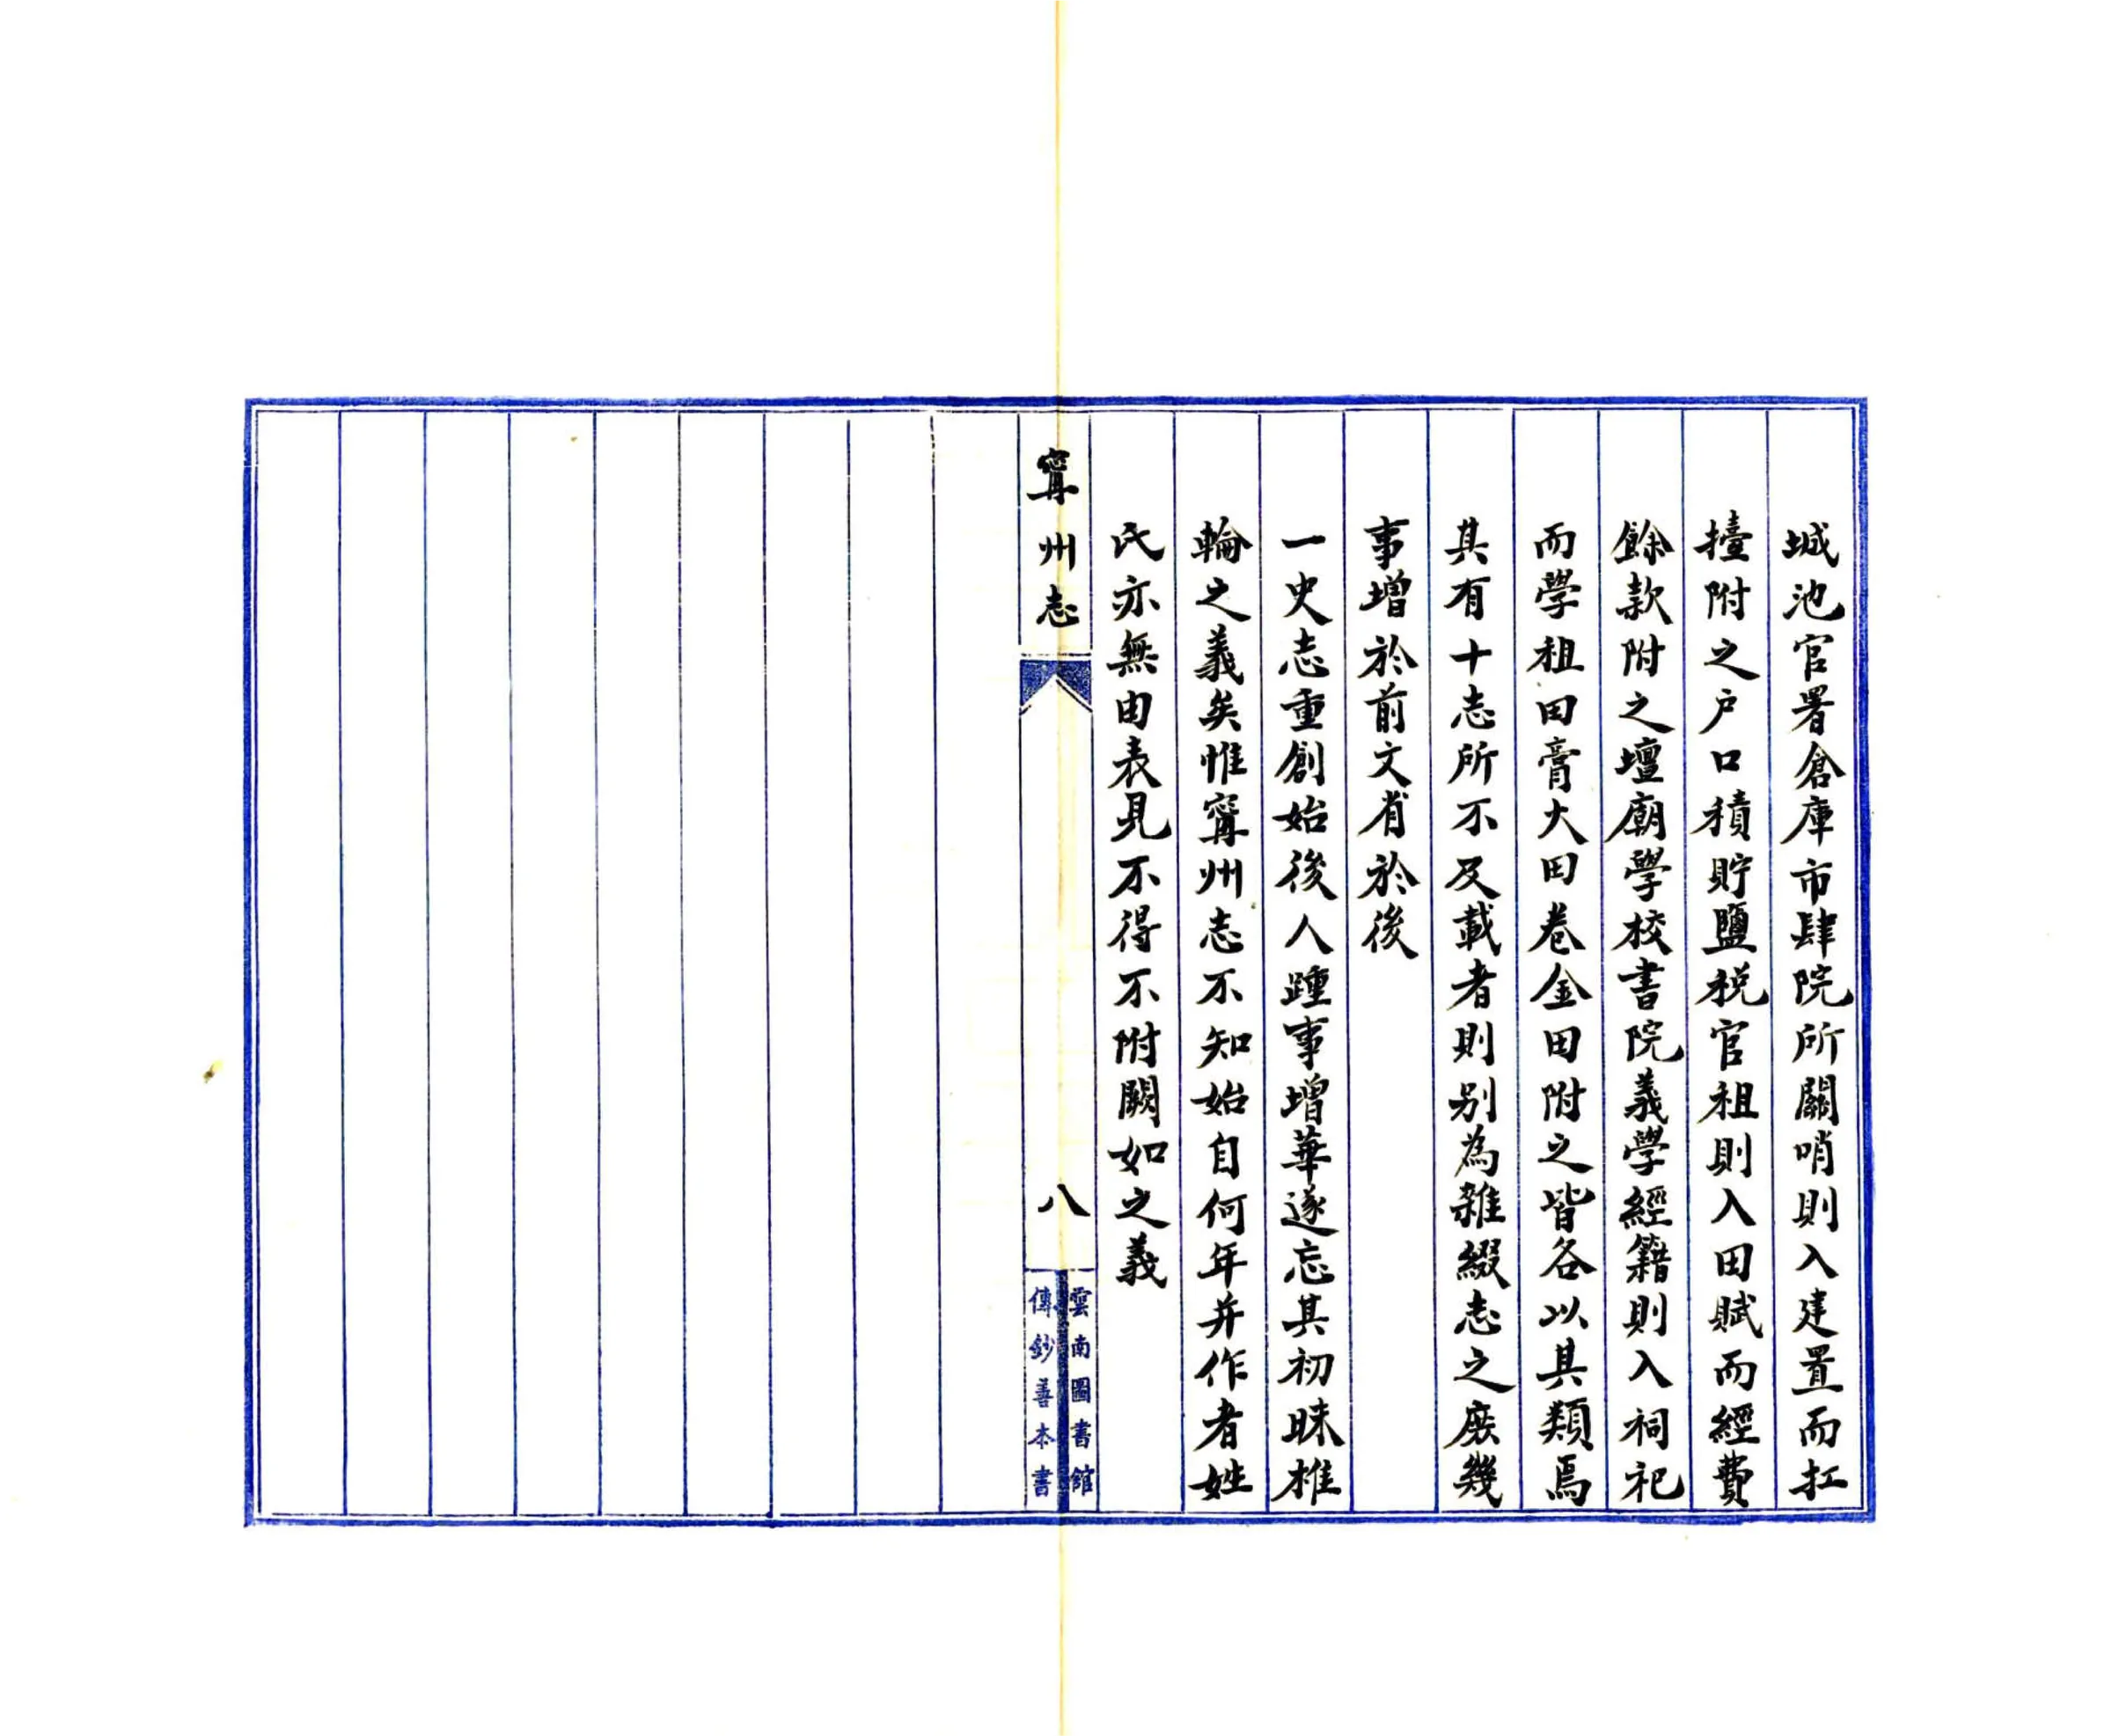 城池官署倉庫市肆院所關哨則入建置而扛
擡附之户口積貯鹽税官租則入田賦而經費
餘款附之壇廟學校書院義學經籍則入祠祀
而學租田膏火田卷金田附之皆各以其類焉
其有十志所不及載者則别為雜綴志之庶幾
事增於前文省於後
一史志重創始後人踵事增華遂忘其初昧椎
輪之義矣惟甯州志不知始自何年并作者姓
氏亦無由表見不得不附闕如之義
甯州志
八
雲南圖書館
傳鈔善本書